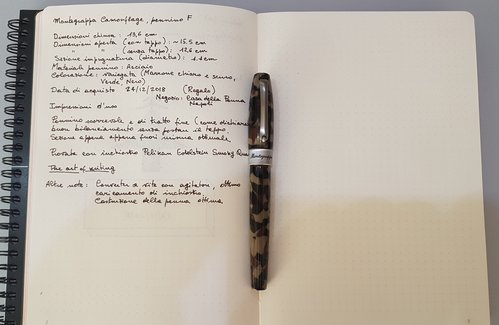 Montegrappa Camouflage, pennino F
Dimensioni chiusa : 13,6 cm
Dimensioni aperta (con tappo) : ~15.5 cm
" " (senza tappo) : 12,6 cm
Sezione impugnatura (diametro) : 1.1 cm
Materiali pennino : Acciaio
Colorazione : variegata (Marrone chiaro e scuro,
Verde, Nero)
Data di acquisto 24/12/2018 (Regalo)
Negozio: Casa della Penna
Napoli
Impressioni d'uso
Pennino scorrevole e di tratto fine (come
buon bilanciamento senza postare il tappo.
Sezione appena appena fuori misura ottimale.
Provata con inchiostro Pelikan Edelstein Smoky Qua
The art of writing
Altre note : Converter a vite con agitatore, ottimo
caricamento di inchiostro.
Costruzione della penna ottima.
Montegrappa